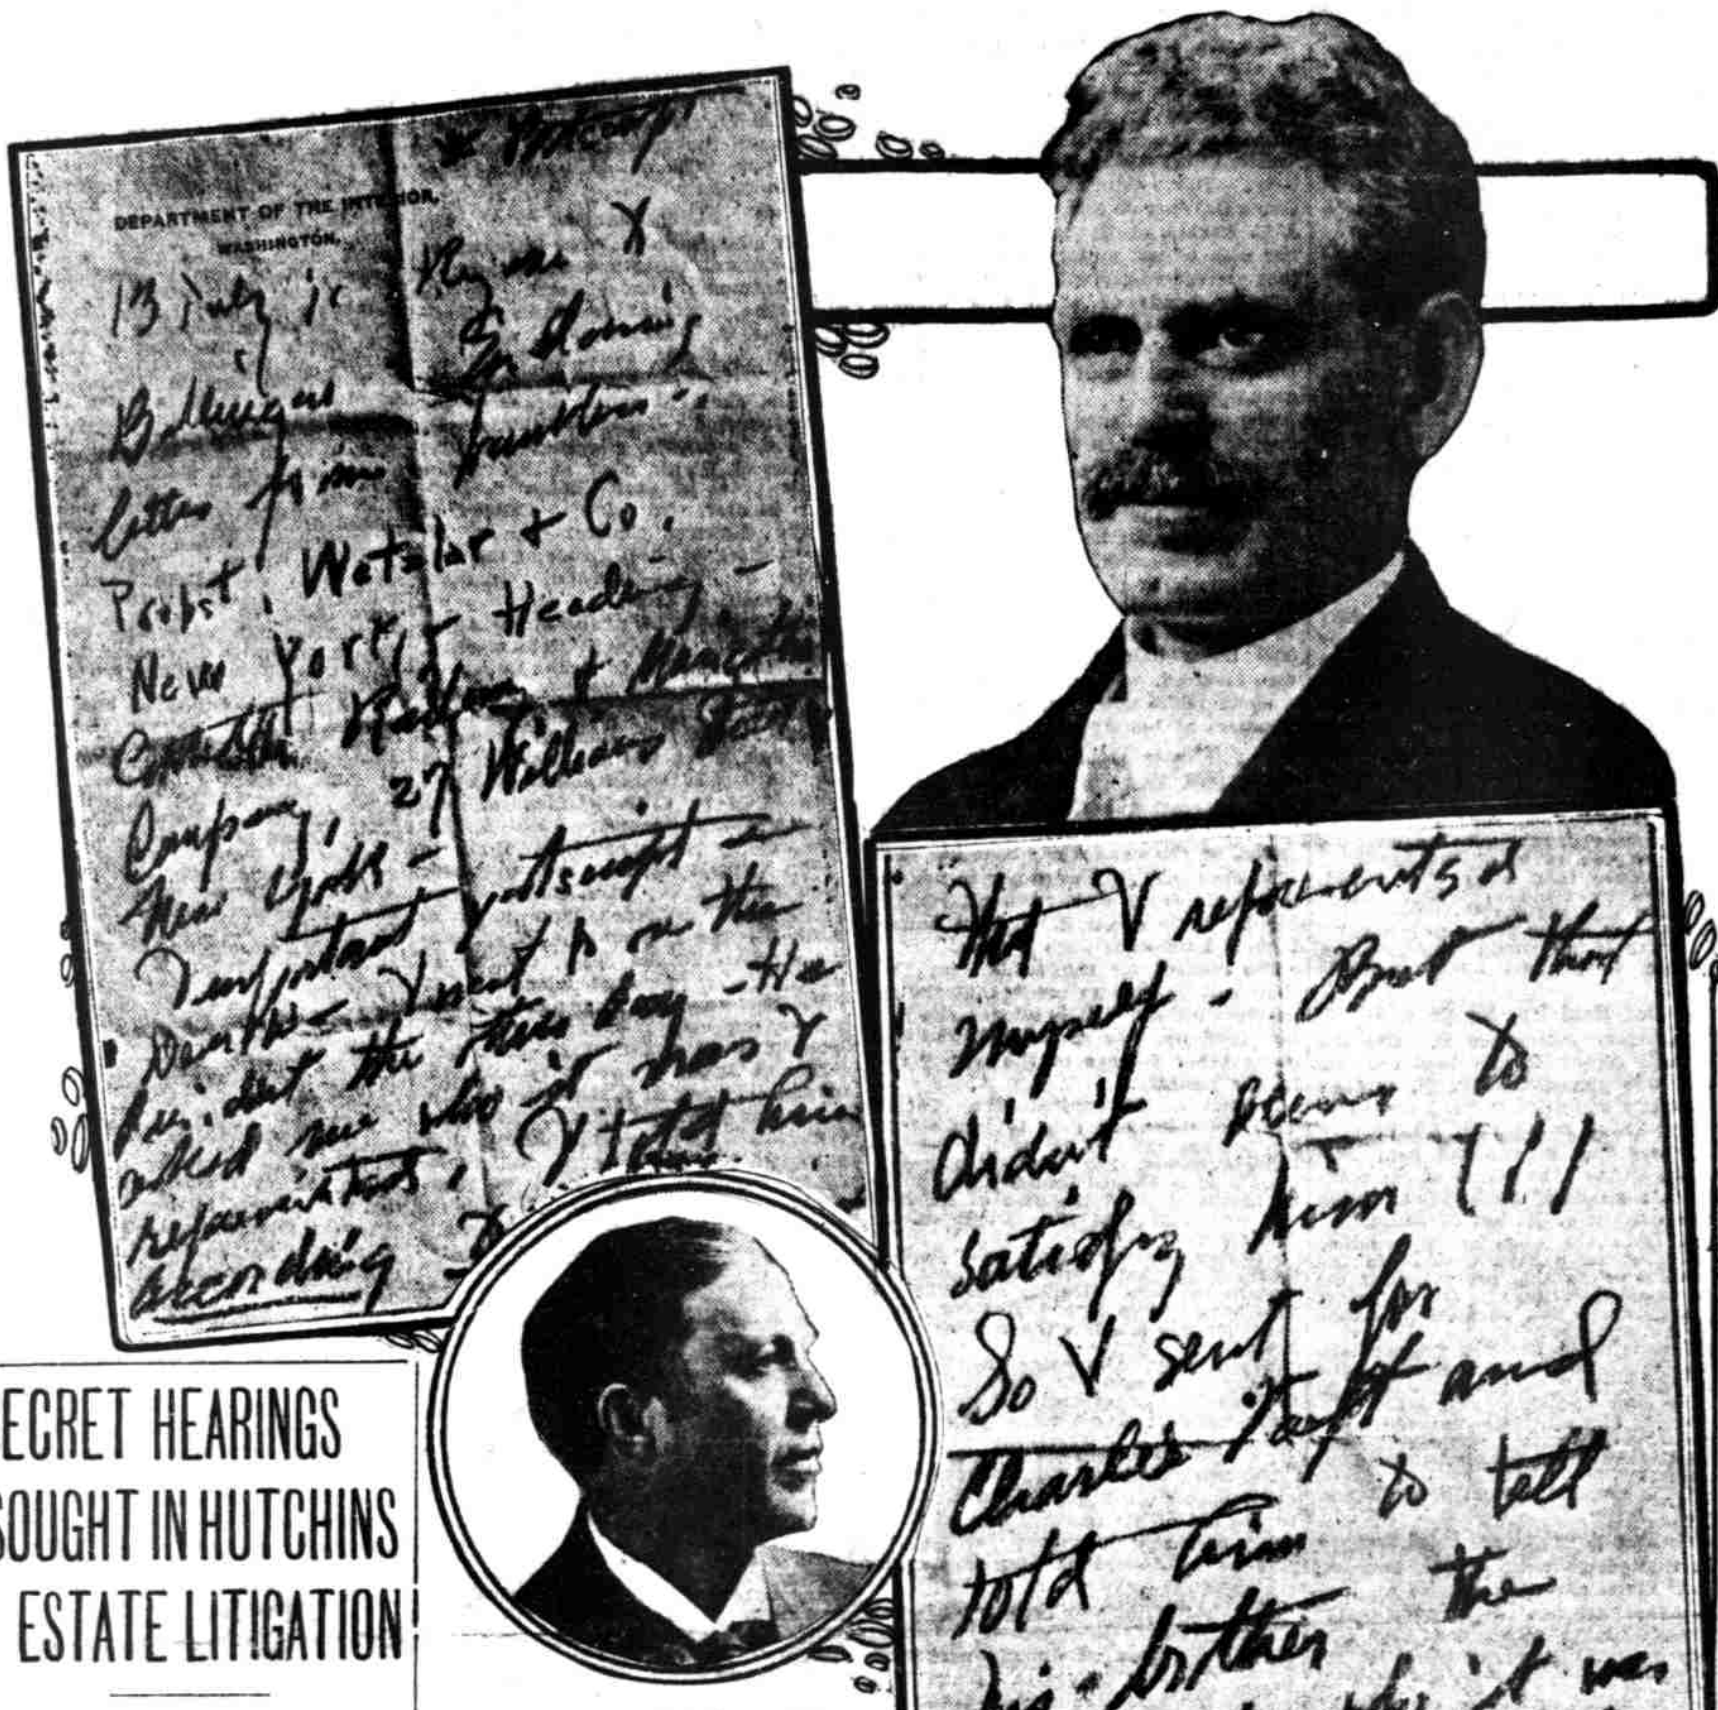 DEPARTMENT OF THE INTERIOR,
WASHINGTON.
13 July
Ballinger
letter from
Probst, Wetzlar & Co.
New York - Heading -
Controller Railway &
Company, 27 William Street
New York -
Important postscript -
Dear D - I went to see the
President the other day - He
asked me who it was I
represented, I told him
according -
That I represented
myself - But that
didn't seem to
satisfy him !!!
So I sent for
Charlie Taft and
told him to tell
his brother the
it was
ECRET HEARINGS
SOUGHT IN HUTCHINS
ESTATE LITIGATION